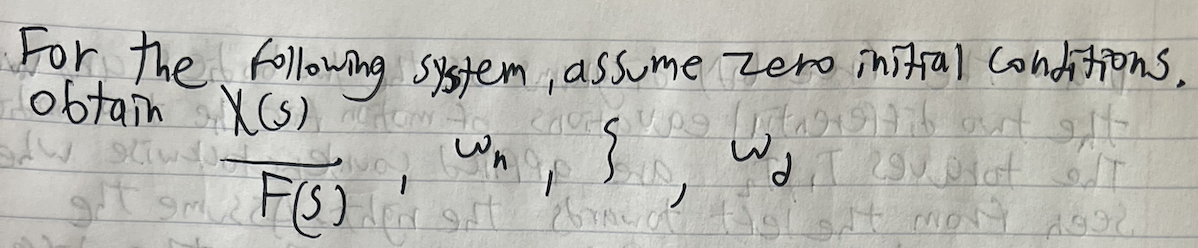 For the following system, assume zero initial conditions.
obtain X(s)/F(s), ωn, ζ, ωd